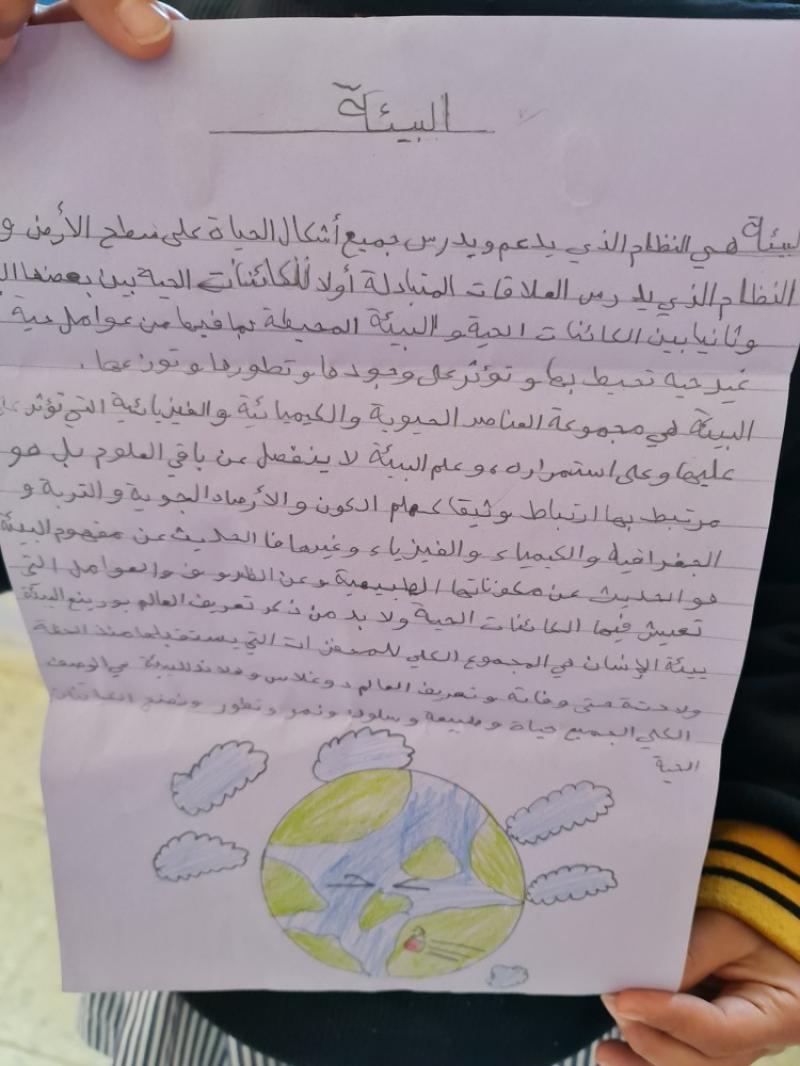 البيئة
لبيئة هي النظام الذي يدعم ويدرس جميع أشكال الحياة على سطح الأرض و
النظام الذي يدرس العلاقات المتبادلة أولا للكائنات الحية بين بعضها ال
وثانيا بين الكائنات الحية و البيئة المحيطة بما فيها من عوامل حية
غير حيه تحيط بها و تؤثر على وجودها و تطورها و توزعها.
البيئة هي مجموعة العناصر الحيوية والكيميائية والفيزيائية التي تؤثر
عليها وعلى استمراره، وعلم البيئة لا ينفصل عن باقي العلوم بل هو
مرتبط بها ارتباط وثيقا كعلم الكون و الأرصاد الجوية و التربة و
الجغرافية و الكيمياء و الفيزياء و غيرها فا الحديث عن مفهوم البيئة
هو الحديث عن مكوناتها الطبيعية و عن الظروف والعوامل التي
تعيش فيها الكائنات الحية ولا بد من ذكر تعريف العالم بورينغ البيئة
بيئة الإنسان هي المجموع الكلي للمحفزات التي يستقبلها منذ الحظة
ولادته حتى وفاته و تعريف العالم دوغلاس و هلاند للبيئة هي الوصف
الكلي الجميع حياة و طبيعة و سلوك و نمو و تطور و نضج الكائنات
الحية